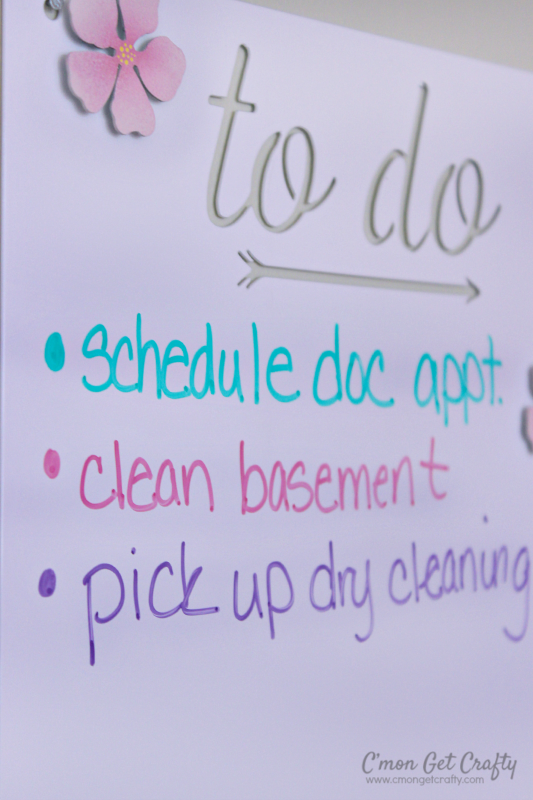 to do
• schedule doc appt.
• clean basement
• pick up dry cleaning
C'mon Get Crafty
www.cmongetcrafty.com